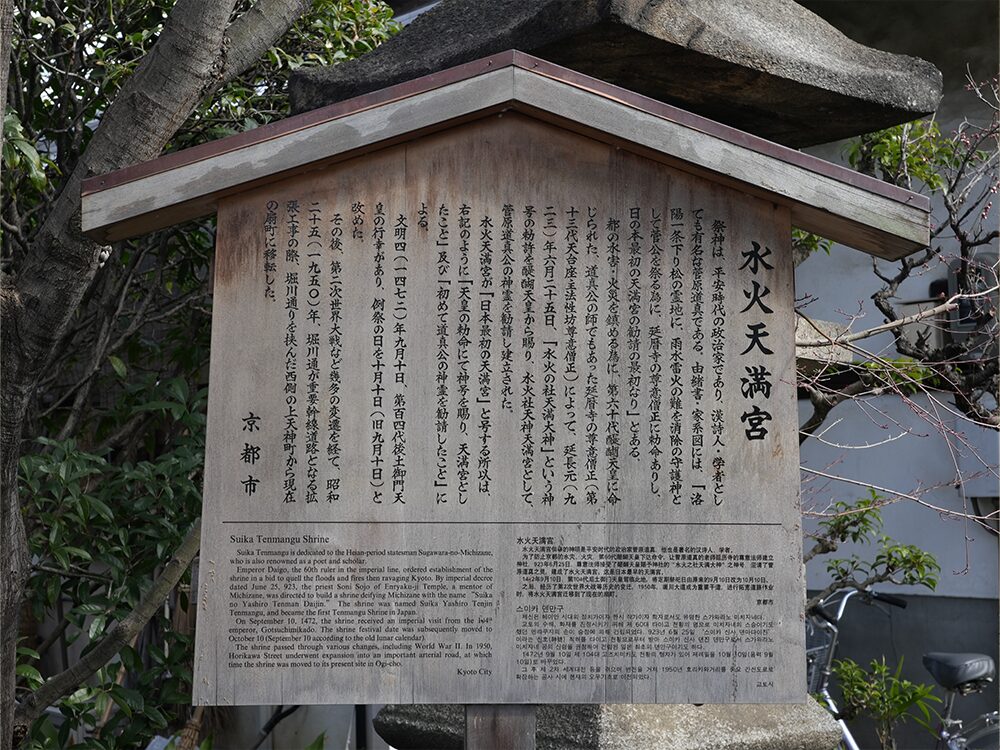 水火天満宮
祭神は、平安時代の政治家であり、漢詩人・学者とし
ても有名な菅原道真である。由緒書・家系図には、「洛
陽一条下り松の霊地に、雨水雷火の難を消除の守護神と
して菅公を祭る為に、延暦寺の尊意僧正に勅命ありし、
日の本最初の天満宮の勧請の最初なり」とある。
都の水害・火災を鎮める為に、第六十代醍醐天皇に命
じられた、道真公の師でもあった延暦寺の尊意僧正(第
十三代天台座主法性坊尊意僧正)によって、延長元(九
二三)年六月二十五日、「水火の社天満大神」という神
号の勅許を醍醐天皇から賜り、水火社天神天満宮として、
菅原道真公の神霊を勧請し建立された。
水火天満宮が「日本最初の天満宮」と号する所以は、
右記のように「天皇の勅命にて神号を賜り、天満宮とし
たこと」及び「初めて道真公の神霊を勧請したこと」に
よる。
文明四(一四七二)年九月十日、第百四代後土御門天
皇の行幸があり、例祭の日を十月十日(旧九月十日)と
改めた。
その後、第二次世界大戦など幾多の変遷を経て、昭和
二十五(一九五〇)年、堀川通が重要幹線道路と成る拡
張工事の際、堀川通りを挟んだ西側の上天神町から現在
の扇町に移転した。
京都市
Suika Tenmangu Shrine
Suika Tenmangu is dedicated to the Heian-period statesman Sugawara-no-Michizane,
who is also renowned as a poet and scholar.
Emperor Daigo, the 60th ruler in the imperial line, ordered establishment of the
shrine in a bid to quell the floods and fires then ravaging Kyoto. By imperial decree
dated June 25, 923, the priest Soni Sojo of Enryaku-ji Temple, a mentor of
Michizane, was directed to build a shrine deifying Michizane with the name "Suika
no Yashiro Tenman Daijin." The shrine was named Suika Yashiro Tenjin
Tenmangu, and became the first Tenmangu Shrine in Japan.
On September 10, 1472, the shrine received an imperial visit from the 104th
emperor, Gotsuchimikado. The shrine festival date was subsequently moved to
October 10 (September 10 according to the old lunar calendar).
The shrine passed through various changes, including World War II. In 1950,
Horikawa Street underwent expansion into an important arterial road, at which
time the shrine was moved to its present site in Ogi-cho.
Kyoto City
水火天满宫
水火天满宫供奉的神明是平安时代的政治家菅原道真，他也是著名的汉诗人、学者。
为了防止京都的水灾、火灾，第60代醍醐天皇下达命令，让菅原道真的老师延历寺的尊意法师建立
神社，923年6月25日，尊意法师接受了醍醐天皇赐予神社的"水火之社天满大神"之神号，迎请了菅
原道真之灵，建成了水火天满宫，这是日本最早的天满宫。
1472年9月10日，第104代后土御门天皇驾临此地，将定期祭祀日由原来的9月10日改为10月10日。
之后，经历了第2次世界大战等历史的变迁，1950年，堀川大道成为重要干道，进行拓宽道路作业
时，将水火天满宫迁移到了现在的扇町。
京都市
스이카 텐만구
교토시